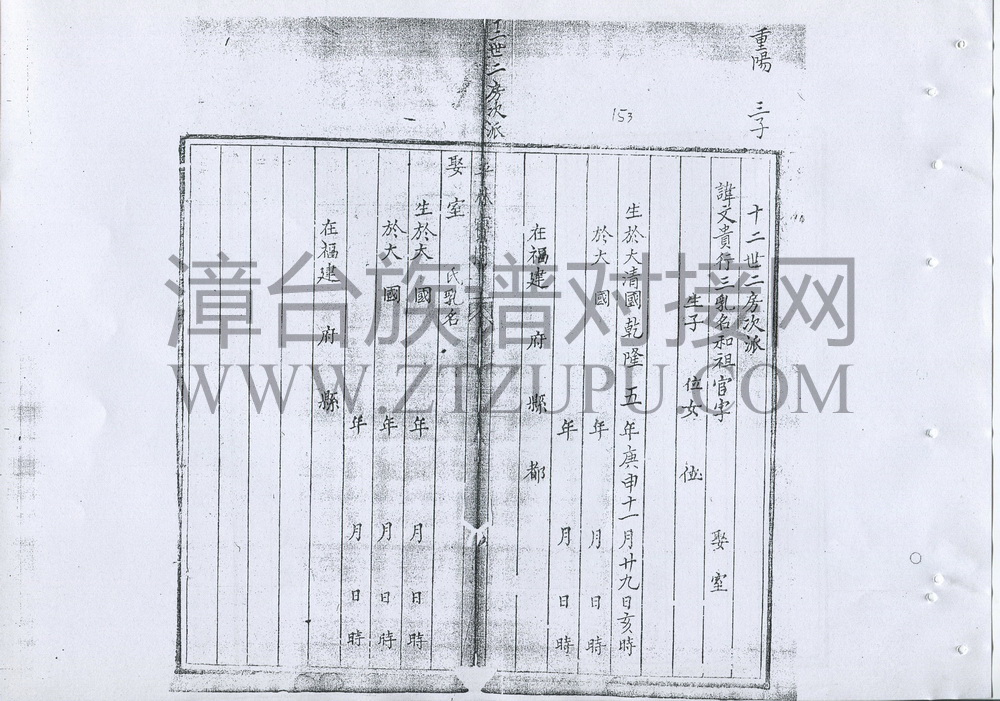 重陽 三子
153
十二世二房次派
十二世二房次派
諱文貴行三乳名和祖官字 娶室
生子 位女 位
生於大清國乾隆五年庚申十一月廿九日亥時
於大 國 年 月 日時
年 月 日時
在福建 府 縣 都
娶室 氏乳名
生於大 國 年 月 日時
於大 國 年 月 日時
年 月 日時
在福建 府 縣
漳台族谱对接网
WWW.ZTZUPU.COM